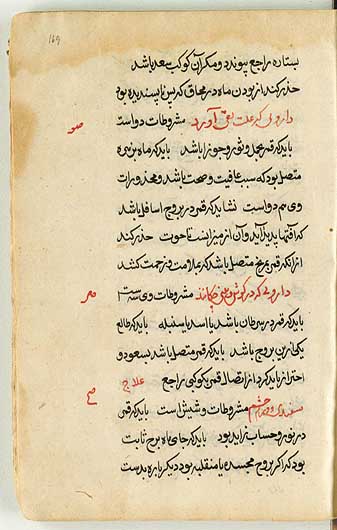 ۱۶۹
بستاره راجع پیوندد و مکر آن کوکب سعد باشد
حذر کند از بودن ماه در محاق که بس ناپسندیده بود
داروی که عت بقی آورد مشروطات دو است
صو
باید که قمر بحمل و ثور و جوزا باشد باید که ماه بزهره
متصل بود که سبب عافیت و صحت باشد و محذورات
وی هم دو است نشاید که قمر در بروج اسافل باشد
که آفتها پدید آید و آن از میزانست تا حوت حذر کند
از آنکه قمر بمریخ متصل باشد که بملامت و زحمت کشد
داروی که در کوش و بینی چکانند مشروطات وی
صر
باید که قمر در سرطان باشد یا اسد یا سنبله باید که طالع
یکی ازین بروج باشد باید که قمر متصل باشد بسعود و
احتراز باید کرد از اتصال قمر بکوکبی راجع علاج
صح
چشم مشروطات وی شش است باید که قمر
در نور و حساب زاید بود باید که جای ماه برج ثابت
بود که اکر بروج مجسده یا منقلبه بود دیکر باره بدست